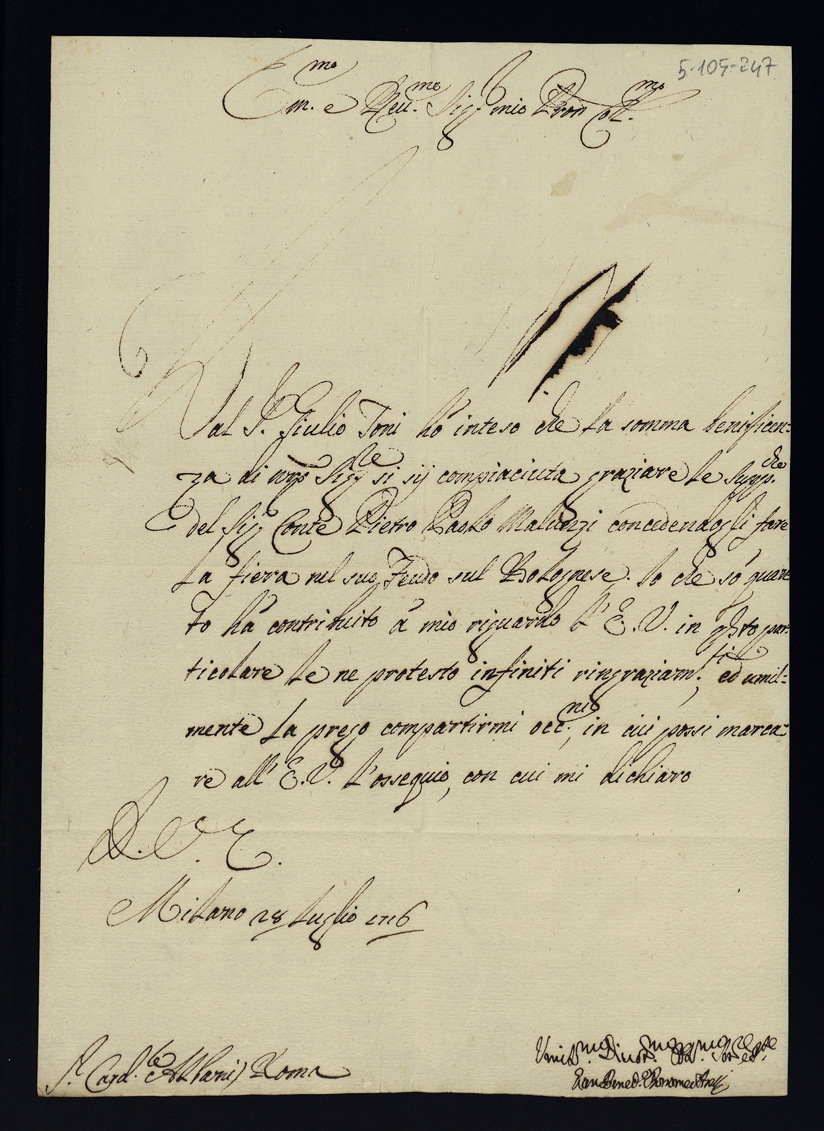 5-105-247
Em.mo e Reu.mo Sig.r mio Pron Coll.mo
Dal P. Giulio Toni hò inteso che la somma benificen:
za di Sig.re si sij compiaciuta graziare le supp.che
del Sig. Conte Pietro Paolo Maluezzi concedendogli fare
la fiera nel suo Feudo sul Bolognese. Io che sò quan
to hà contribuito à mio riguardo l'E. V. in par:
ticolare le ne protesto infiniti ringraziam.ti, ed umil:
mente la prego compartirmi occ.ni, in cui possi marca:
re all'E. V. l'ossequio, con cui mi dichiaro
D. V. E.
Milano 28 Luglio 1716
S.r Card.le Albani / Roma
Umil.mo Diuot.mo Obl.mo
Borromeo Arese